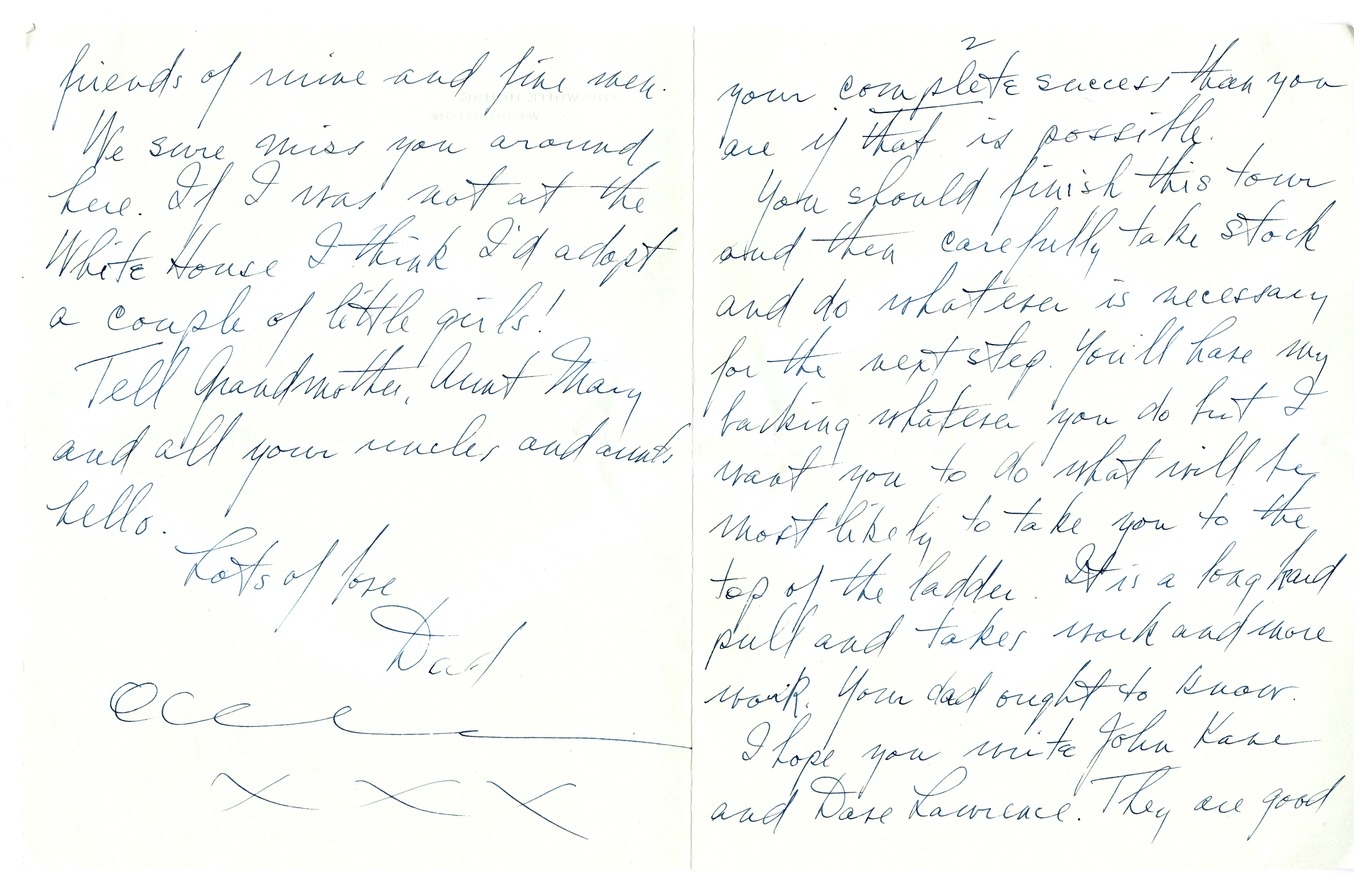 2
your complete success than you
are if that is possible.
You should finish this tour
and then carefully take stock
and do whatever is necessary
for the next step. You'll have my
backing whatever you do but I
want you to do what will be
most likely to take you to the
top of the ladder. It is a long hard
pull and takes work and more
work. Your dad ought to know.
I hope you write John Kane
and Dave Lawrence. They are good
friends of mine and fine men.
We sure miss you around
here. If I was not at the
White House I think I'd adopt
a couple of little girls!
Tell Grandmother, Aunt Mary
and all your uncles and aunts
hello.
Lots of love
Dad
XXX